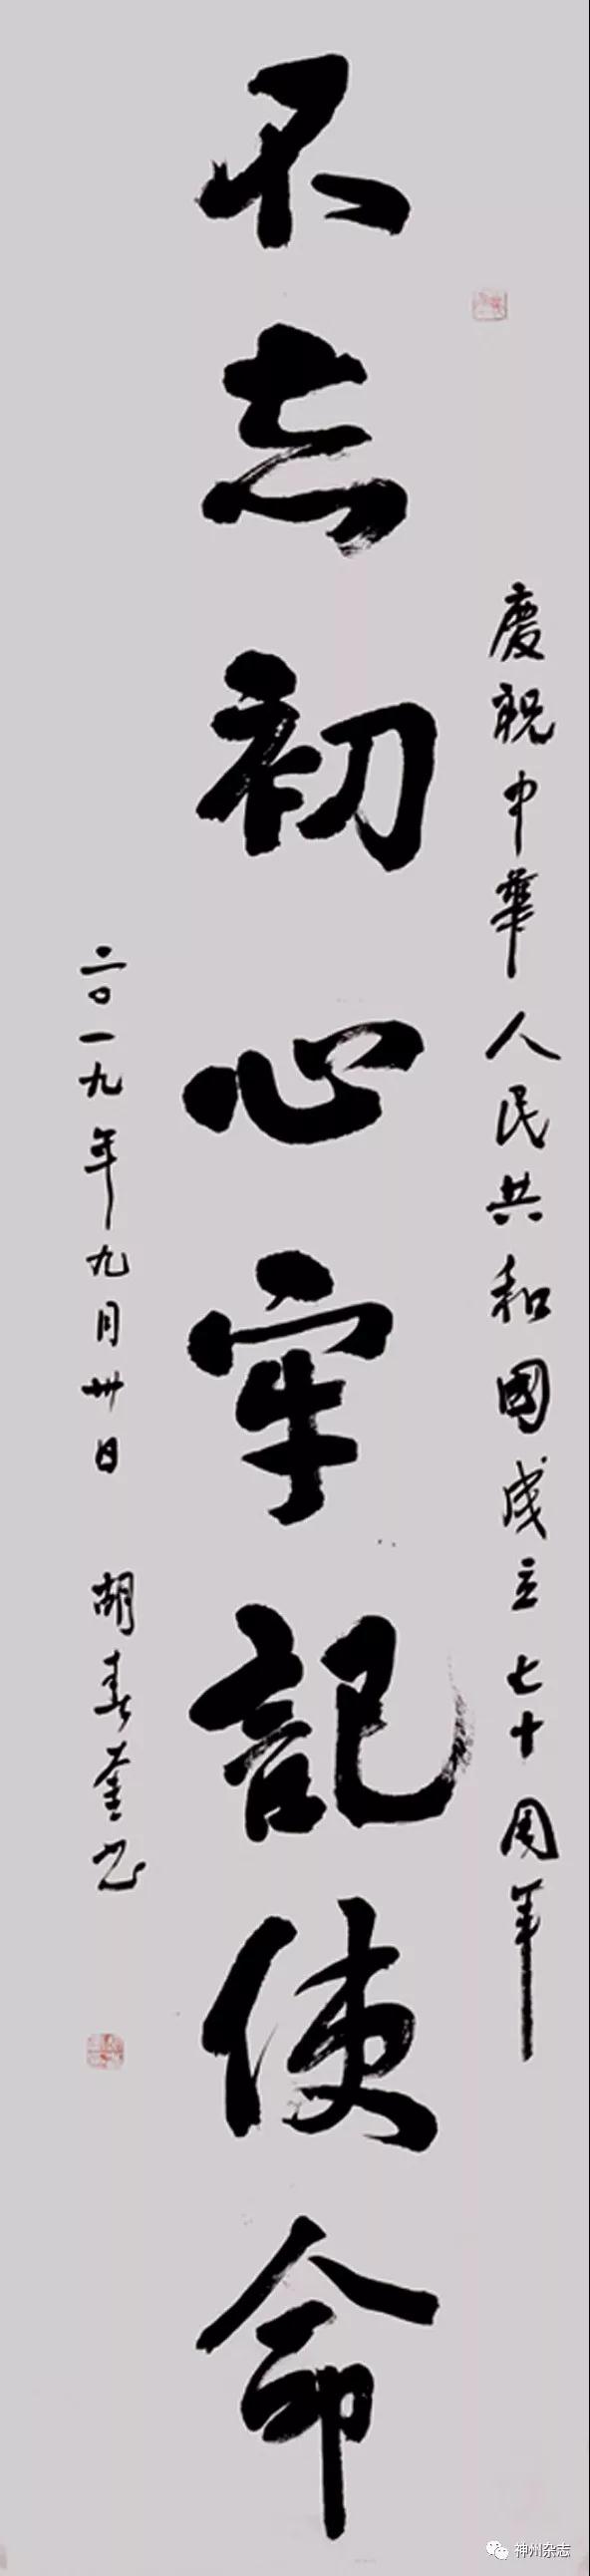 慶祝中華人民共和國成立七十周年
不忘初心牢記使命
二〇一九年九月卅日 胡春奎书
神州杂志